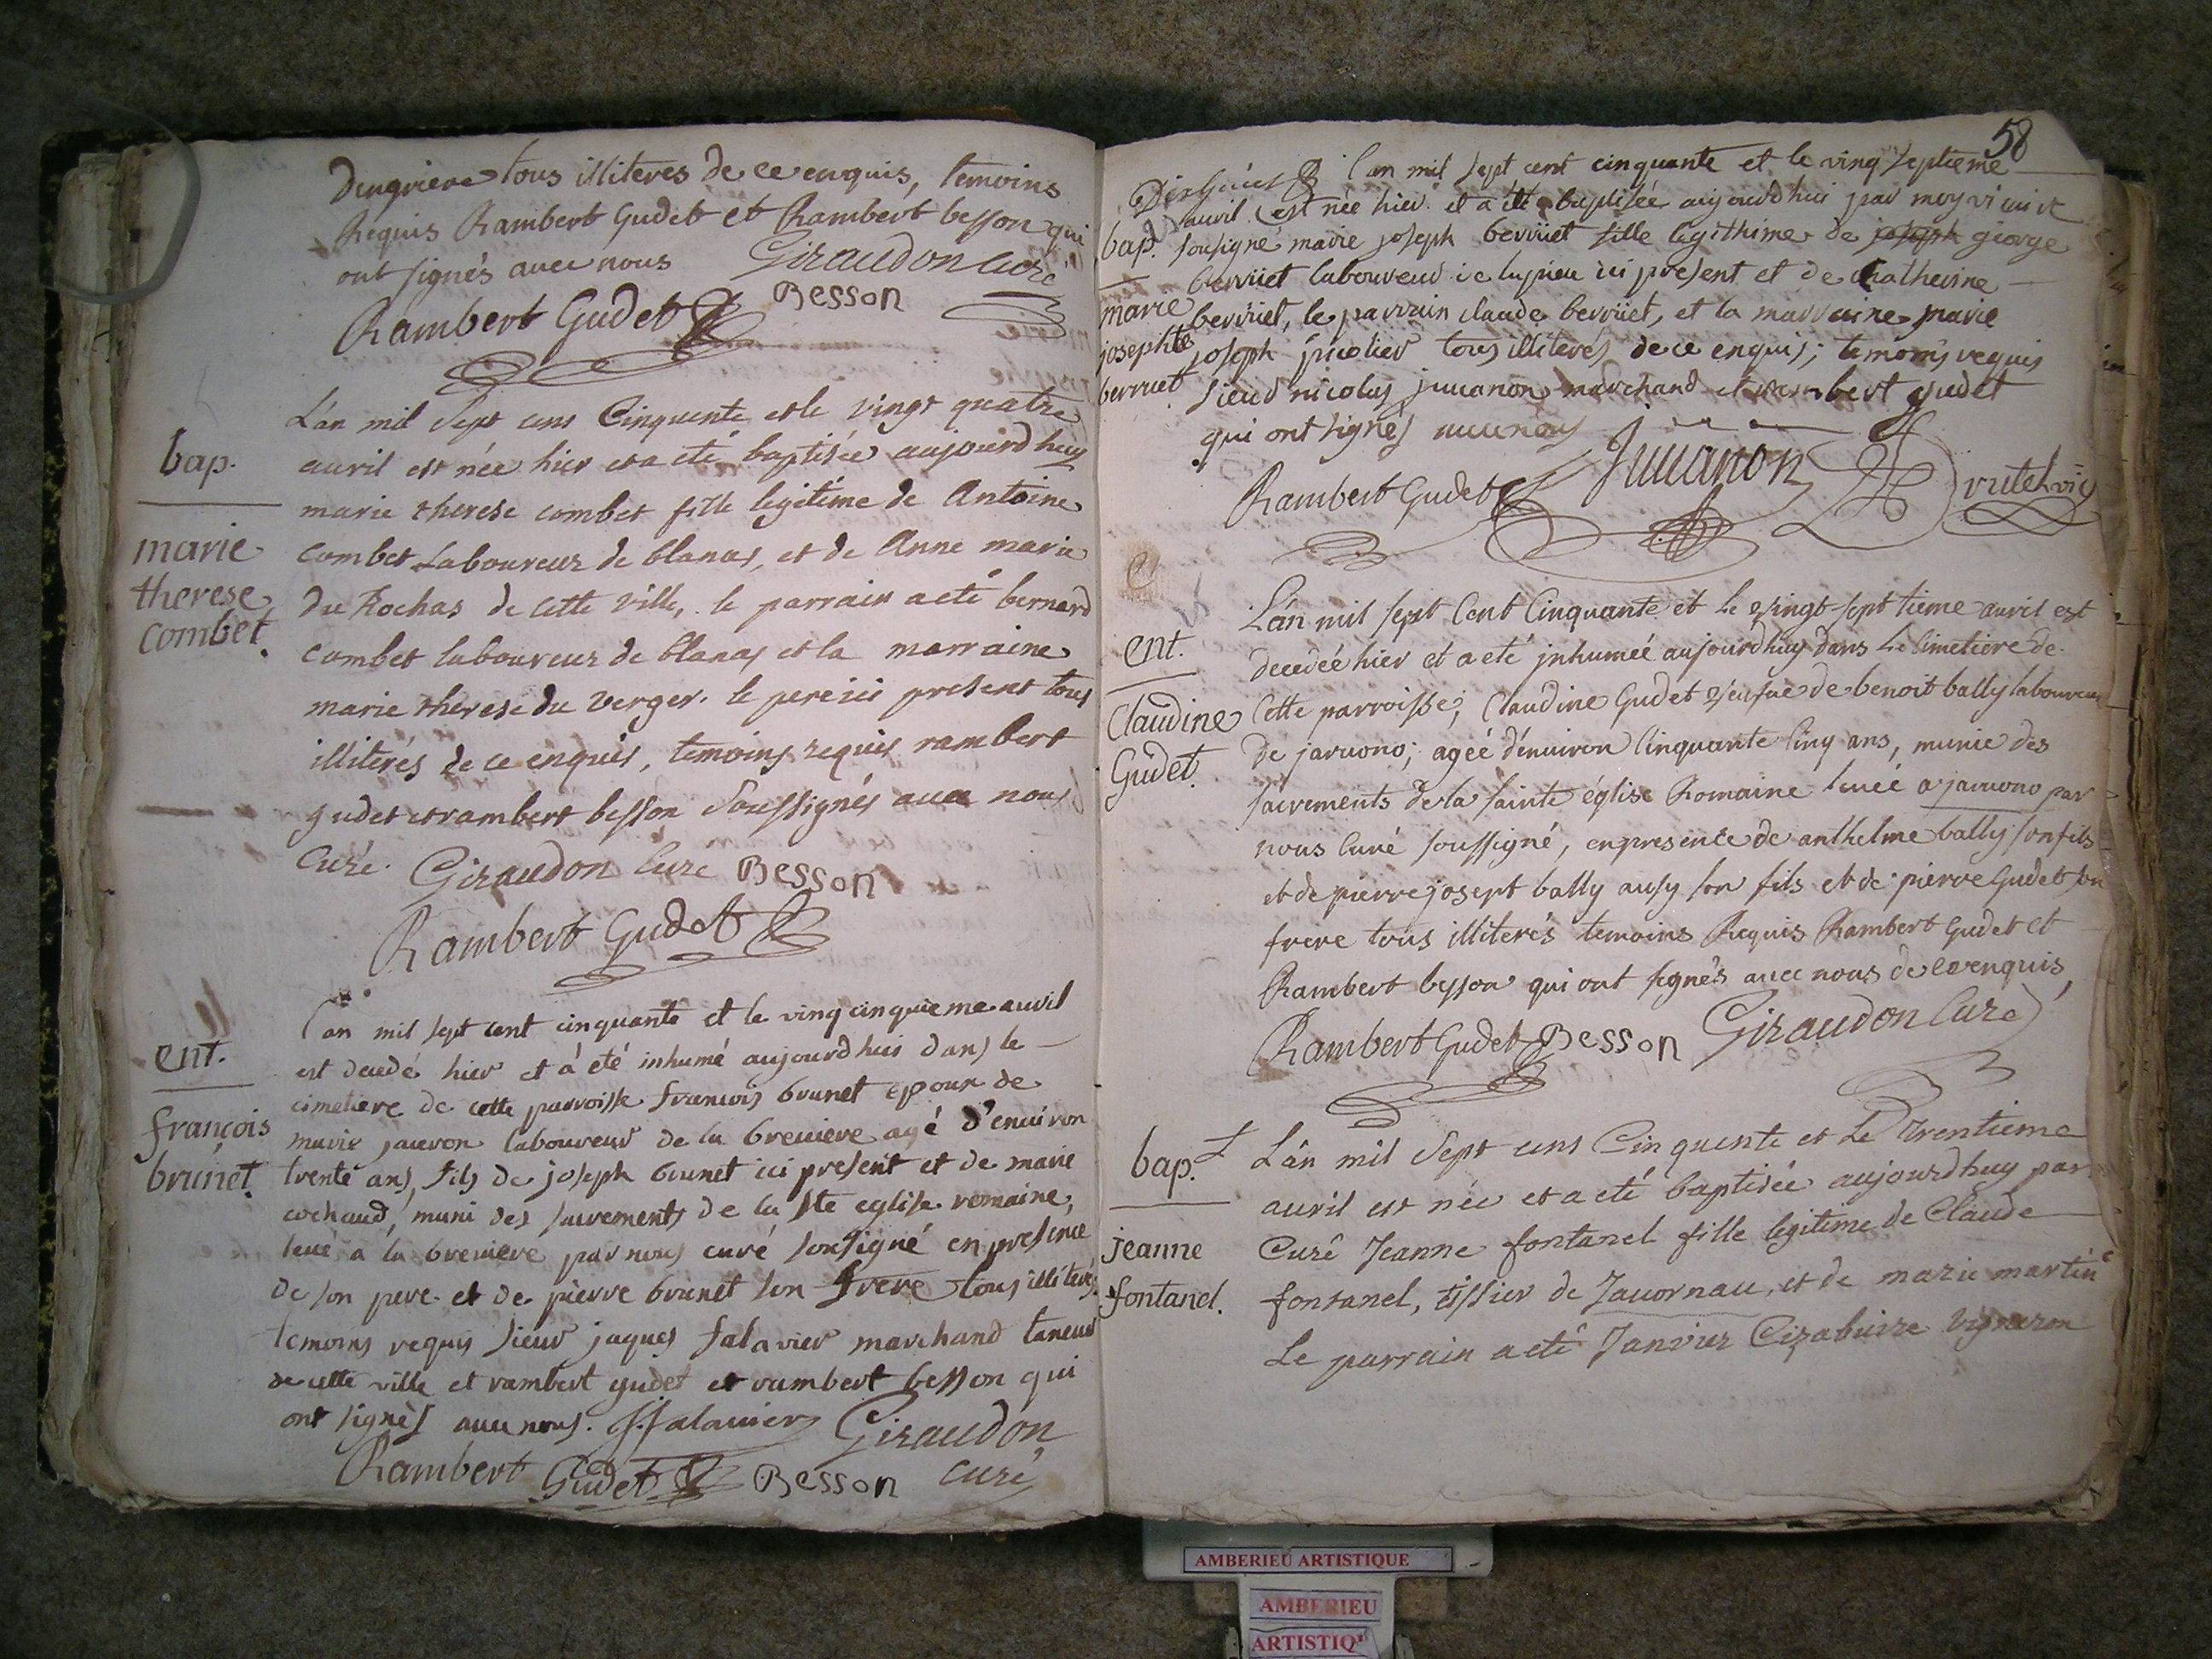 dengriere tous illiteres de ce enquis, temoins
Requis Rambert Gudet et Rambert besson qui
ont signés avec nous Giraudon Curé
Rambert Gudet Besson
bap.
marie
therese
combet.
L'an mil sept cens Cinquente et le vingt quatre
avril est née hier et a eté baptisée aujourdhuy
marie therese combet fille legitime de Antoine
combet Laboureur de blanas, et de Anne marie
du Rochas de cette ville, le parrain a eté bernard
combet laboureur de blanas et la marraine
marie therese du verger. le pere ici present tous
illiterés de ce enquis, temoins requis rambert
gudet et rambert besson soussignés avec nous
Curé. Giraudon Curé Besson
Rambert Gudet
ent.
françois
brunet.
L'an mil sept cent cinquante et le vingcinquieme avril
est decedé hier et a été inhumé aujourdhui dans le
cimetiere de cette parroisse francois brunet epoux de
marie jauron laboureur de la breviere agé d'environ
trente ans, fils de joseph brunet ici present et de marie
cochaud, muni des sacrements de la ste eglise romaine,
levé a la breviere par nous curé sousigné en presence
de son pere et de pierre brunet son frere tous illiterés.
temoins requis sieur jaques falavier marchand taneur
de cette ville et rambert gudet et rambert besson qui
ont signés avec nous. J. falavier Giraudon
Rambert Gudet Besson curé
58
L'an mil sept cent cinquante et le ving septieme
avril est née hier et a été baptisée aujourdhui par moy vicaire
bap. sousigné marie joseph berruiet fille legithime de joseph george
berruiet laboureur de lupieu ici present et de Catherine
marie
josephte
berruet.
berruiet, le parrain claude berruiet, et la marraine marie
joseph picolier tous illiterés de ce enquis; temoins requis
sieur nicolas juvanon marchand et rambert gudet
qui ont signés avec nous
Rambert Gudet Juvanon
ent.
Claudine
Gudet.
L'an mil sept Cent Cinquante et le vingt septieme avril est
decedeé hier et a eté inhumeé aujourdhuy dans le Cimetiere de
Cette parroisse; Claudine Gudet veufue de benoit bally laboureur
de jarvono; ageé d'environ Cinquante Cinq ans, munie des
sacrements de la sainte église Romaine leveé a javuono par
nous Curé soussigné, en presence de anthelme bally son fils
et de pierre josept bally ausy son fils et de pierre Gudet son
frere tous illiterés temoins Requis Rambert Gudet et
Rambert besson qui ont signés avec nous de ce enquis,
Rambert Gudet Besson Giraudon Curé
bap.
jeanne
fontanel.
L'an mil sept cens Cinquente et le trentieme
avril est née et a eté baptisée aujourdhuy par
Curé Jeanne fontanel fille legitime de Claude
fontanel, tissier de Javornau, et de marie martin
Le parrain a eté Janvier Cizabuire vigneron
AMBERIEU ARTISTIQUE
AMBERIEU
ARTISTIQ